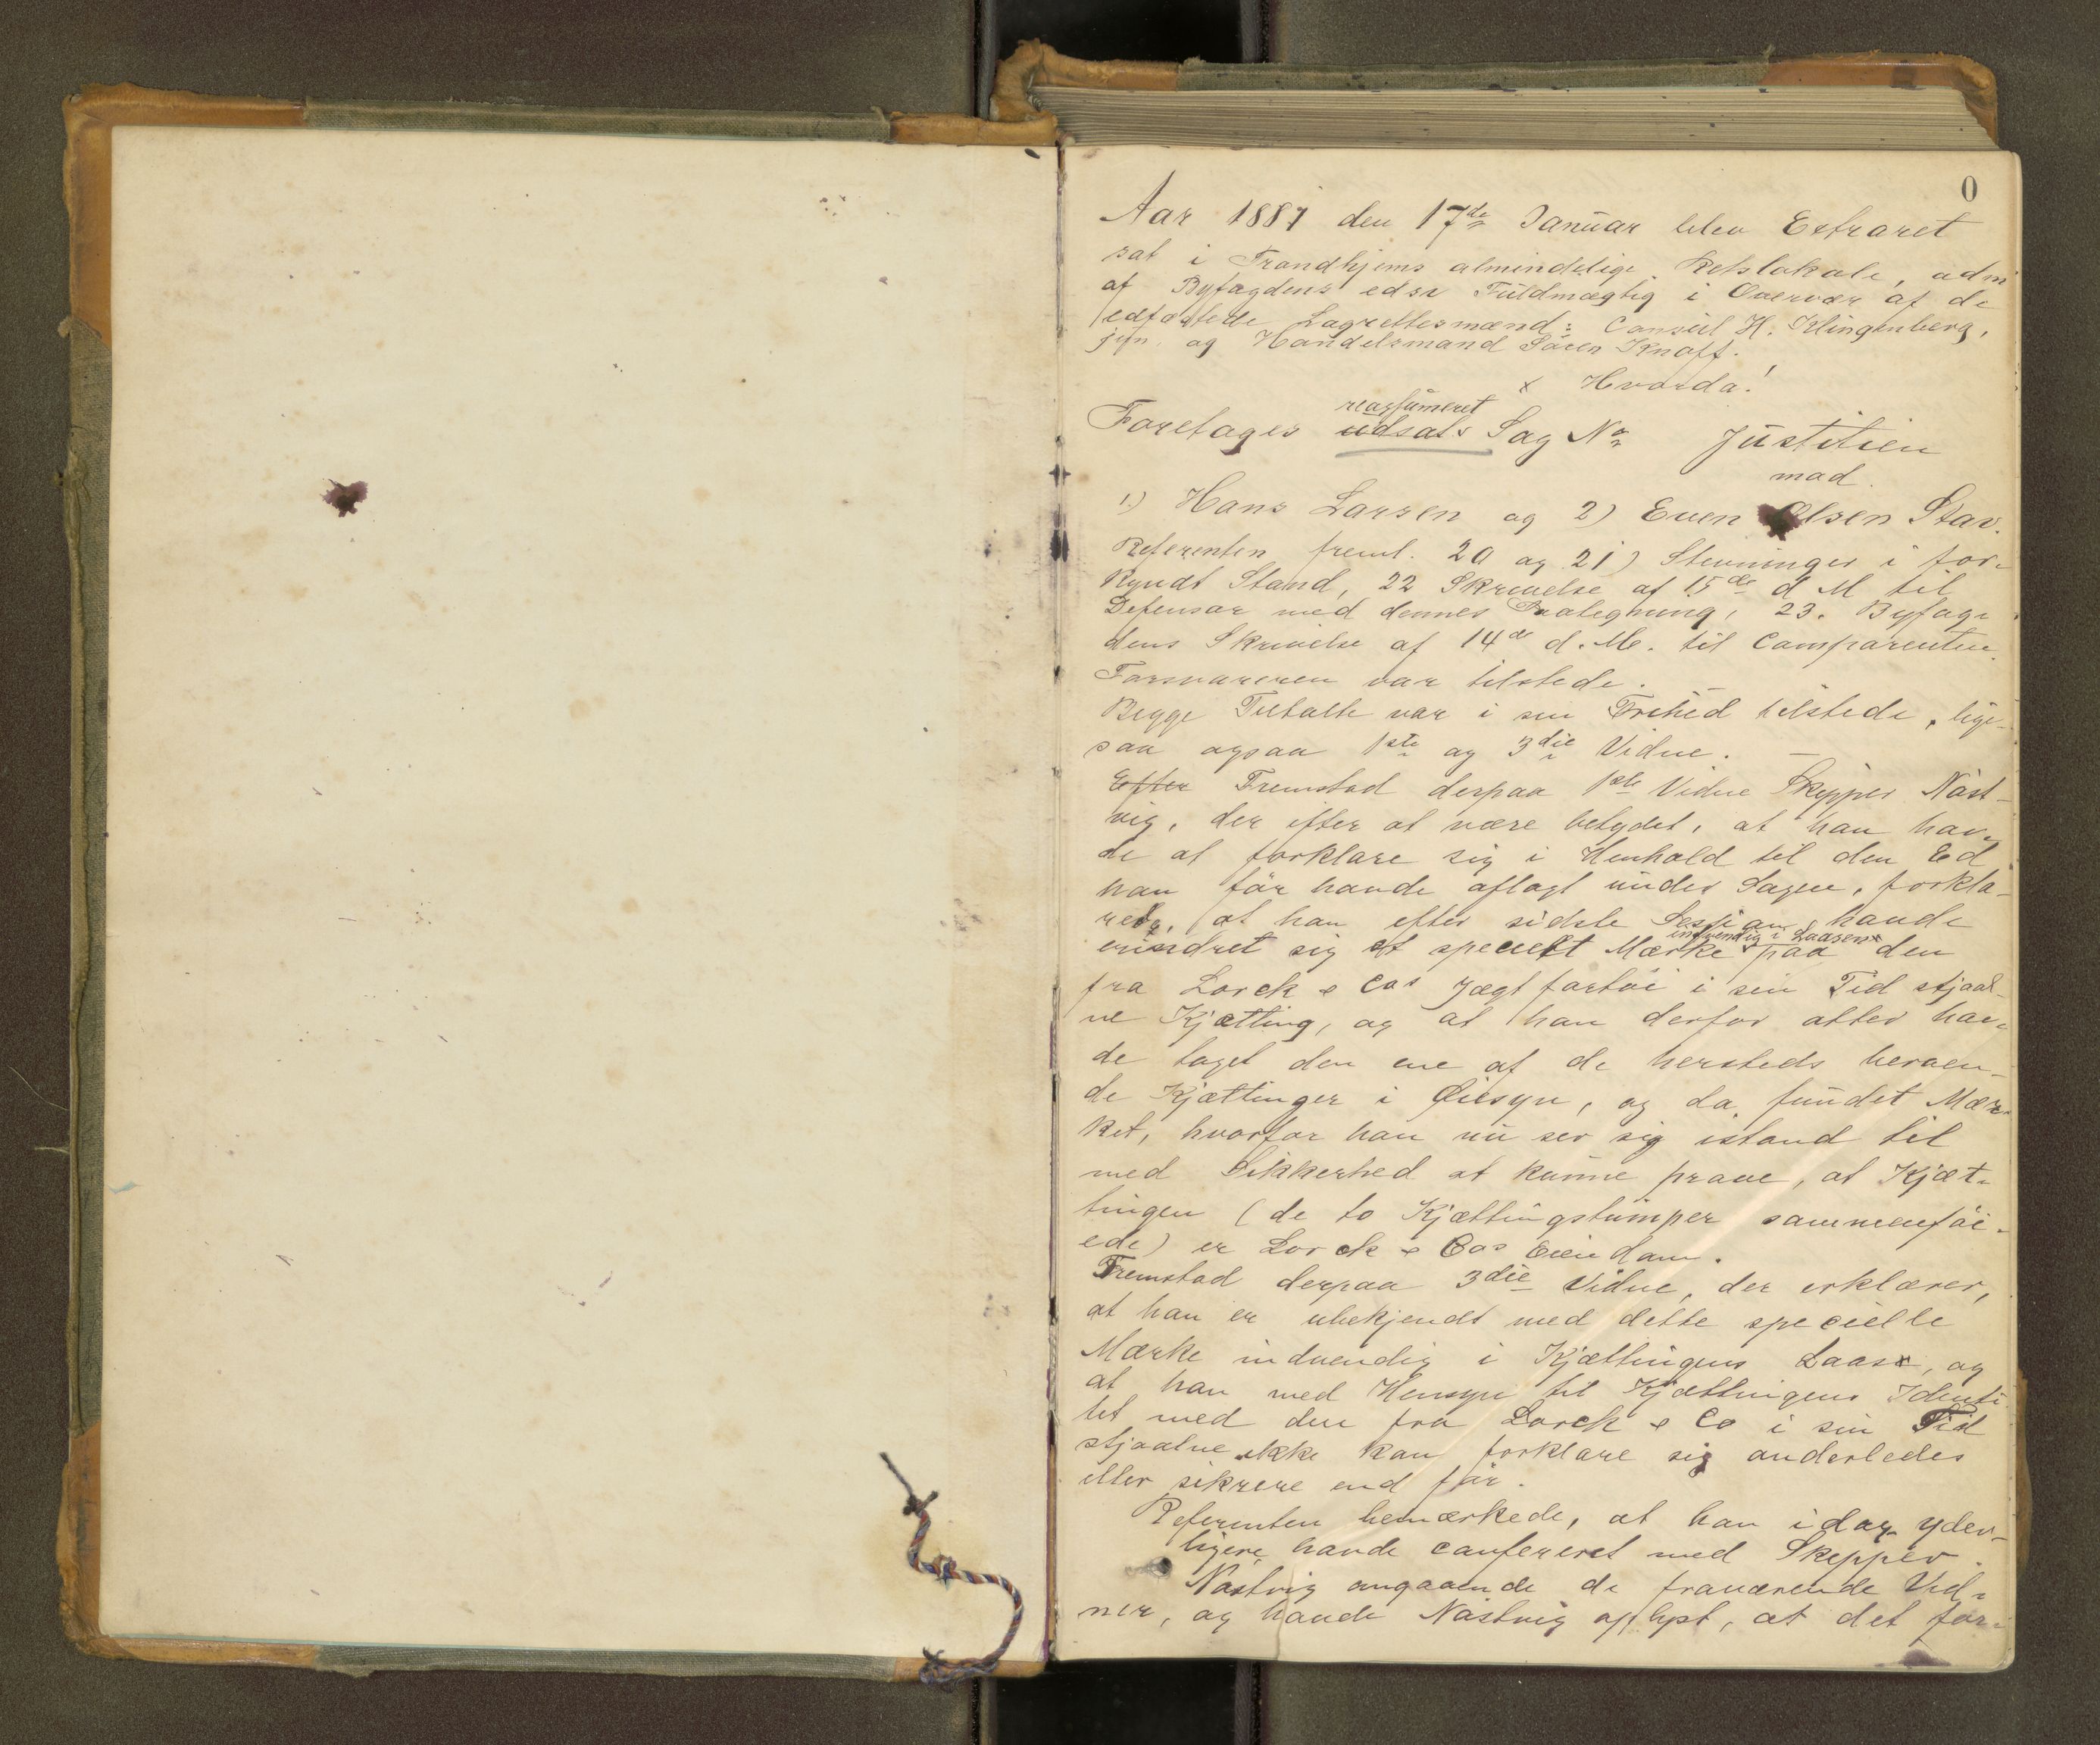 0
Aar 1887 den 17de Januar blev Extraret
sat i Trondhjems almindelige Retslokale, adm
af Byfogdens edsv Fuldmægtig i Overvær af de
edfæstede Lagrettesmænd: Consul H. Klingenberg,
jyn. og Handelsmand Sören Knoff.
x Hvorda!
reassumeret
Foretages udsats Sag No Justitien
mod.
1.) Hans Larsen og 2) Even Olsen Stav.
Referenten freml. 20 og 21) Stevninger i for-
kyndt Stand, 22 Skrivelse af 15de d M til
Defensor med dennes Paategning, 23. Byfog-
dens Skrivelse af 14de d. M. til Comparenten.
Forsvareren var tilstede. —
Begge Tiltalte var i sin Frihed tilstede, lige-
saa ogsaa 1ste og 3die Vidne. —
Efter Fremstod derpaa 1ste Vidne Skipper Nöst-
vig, der efter at være betydet, at han hav-
de at forklare sig i Henhold til den Ed
han för havde aflagt under Sagen, forkla-
rede, at han efter sidste Session havde
indvendig i Laasen
erindret sig et specielt Mærke paa den
fra Lorck & Cos Jægt fortöi i sin Tid stjaal-
ne Kjætting, og at han derfor atter hav-
de taget den ene af de hersteds beroen-
de Kjættinger i Öiesyn, og da fundet Mær-
ket, hvorfor han nu ser sig istand til
med Sikkerhed at kunne prove, at Kjæt-
tingen (de to Kjættingstumper sammenföi-
ede) er Lorck & Cos Eiendom.
Fremstod derpaa 3die Vidne, der erklærer,
at han er ubekjendt med dette specielle
Mærke indvendig i Kjættingens Laas, og
at han med Hensyn til Kjættingens Identi-
tet med den fra Lorck & Co i sin Tid
stjaalne ikke kan forklare sig anderledes
eller sikrere end för.
Referenten bemærkede, at han idag yder-
ligere havde confereret med Skipper
Nöstvig angaaende de fraværende Vid-
ner, og havde Nöstvig oplyst, at det for-